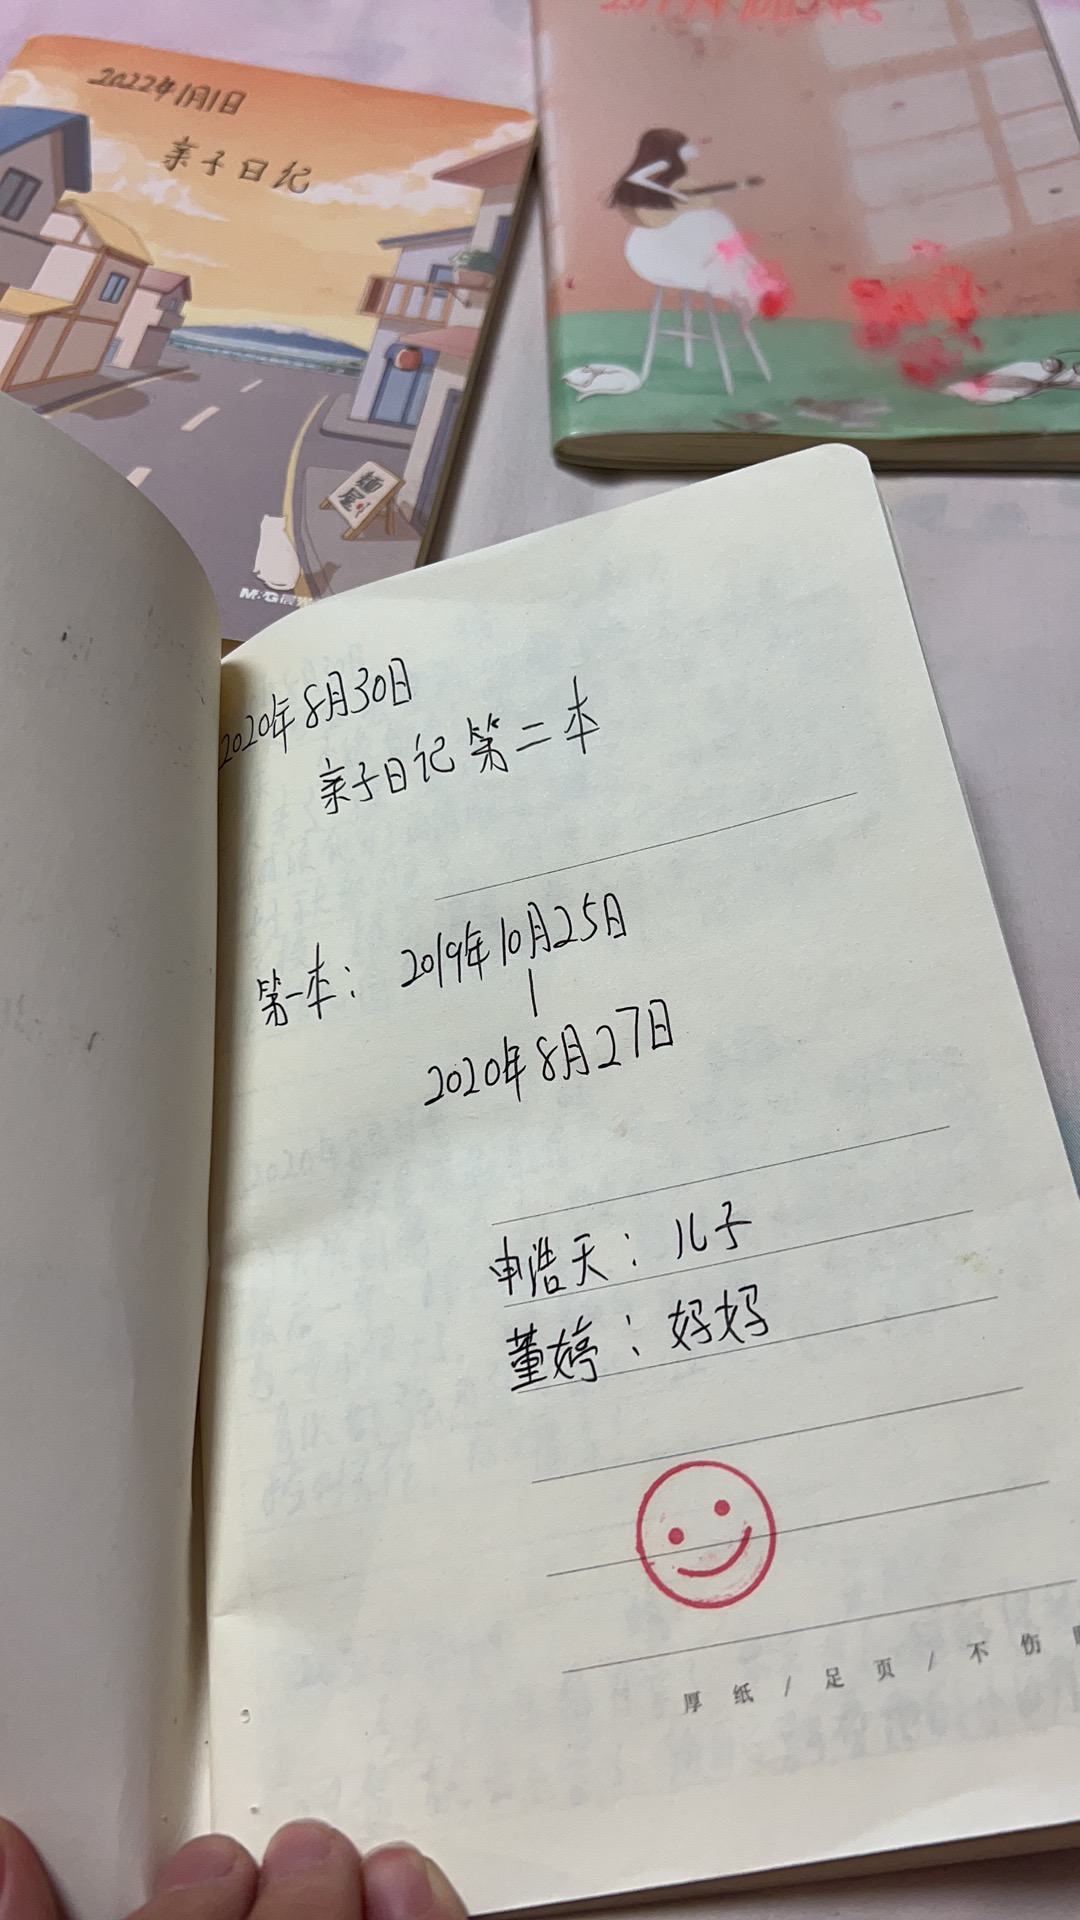 2022年1月1日
亲子日记
麺屋
M&G晨光
2020年8月30日
亲子日记第二本
第一本：2019年10月25日
|
2020年8月27日
申浩天：儿子
董婷：妈妈
厚纸/足页/不伤